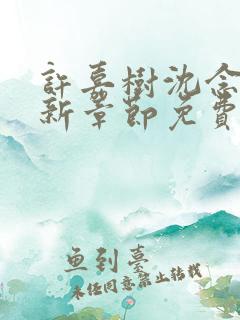 許嘉樹沈念
新章節免費
鱼到臺
未经同意禁止转载